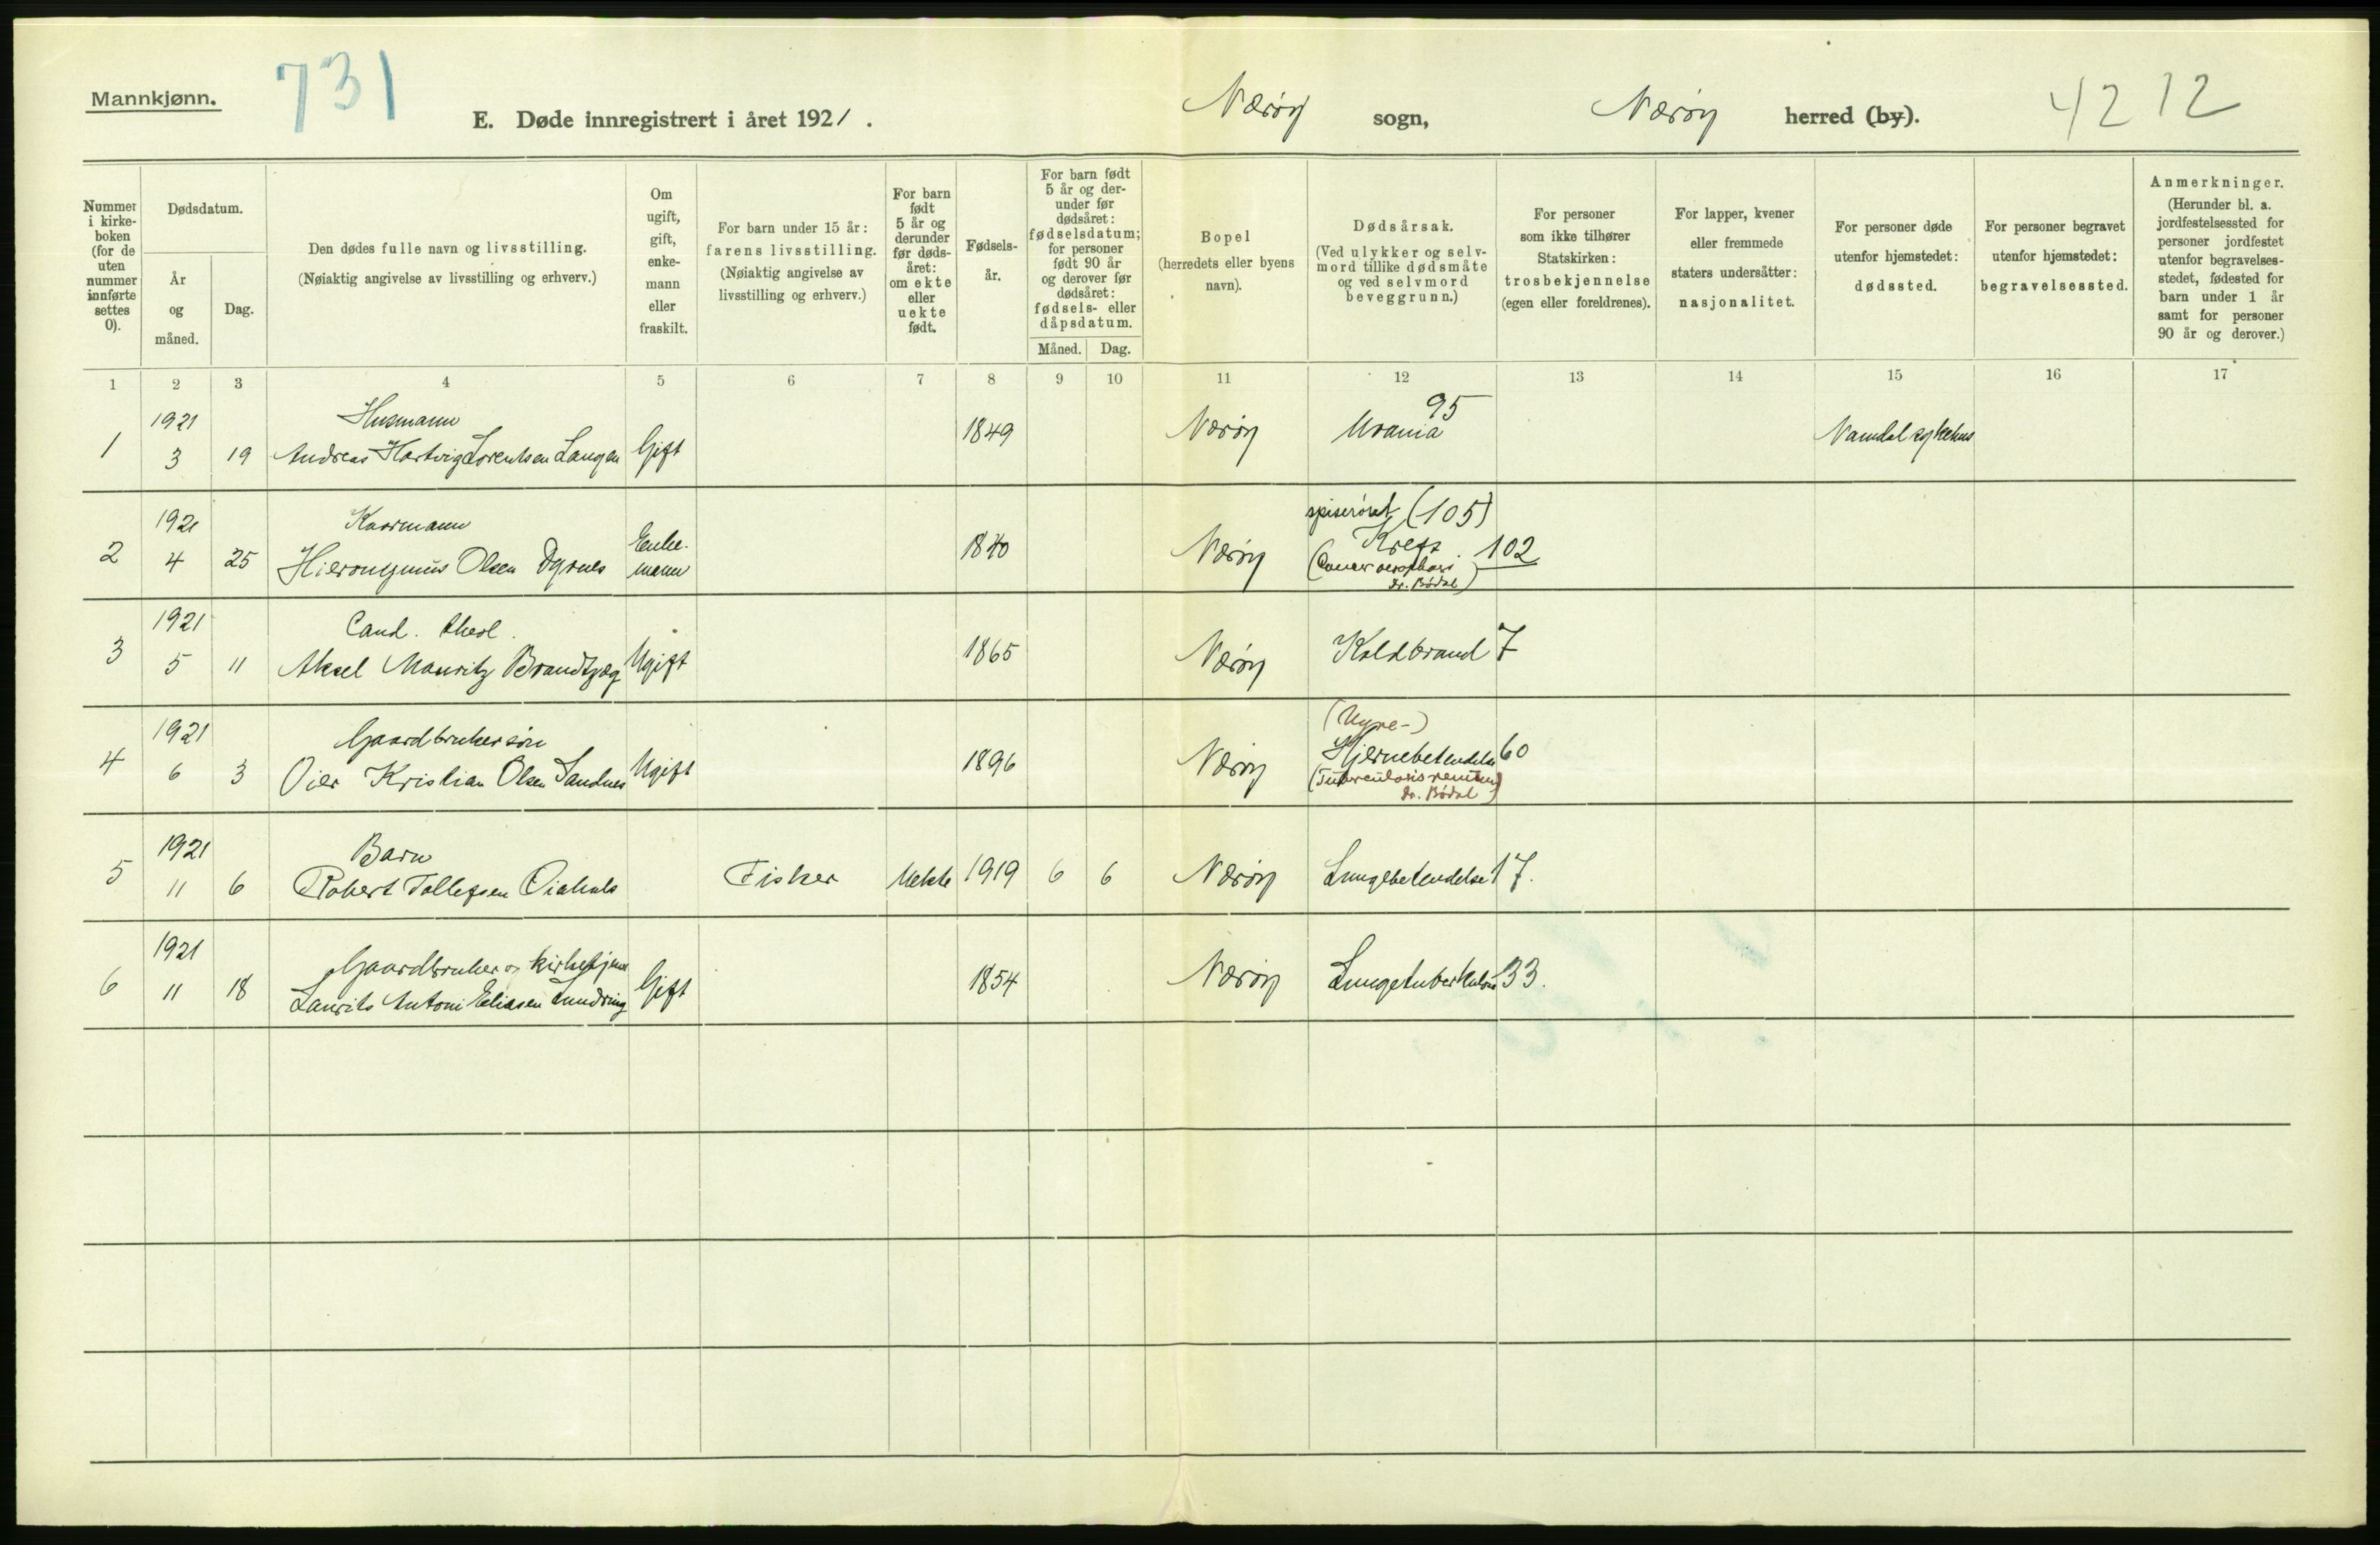 Mannkjønn.
731
E. Døde innregistrert i året 1921.
Nærøy sogn,
Nærøy herred (by).
42 12
Nummer i kirke-boken (for de uten nummer innførte settes 0).
Dødsdatum.
År og måned.
Dag.
Den dødes fulle navn og livsstilling.
(Nøiaktig angivelse av livsstilling og erhverv.)
Om ugift, gift, enke-mann eller fraskilt.
For barn under 15 år: farens livsstilling.
(Nøiaktig angivelse av livsstilling og erhverv.)
For barn født 5 år og derunder før døds-året: om ekte eller uekte født.
Fødsels-år.
For barn født 5 år og der-under før dødsåret: fødselsdatum; for personer født 90 år og derover før dødsåret: fødsels- eller dåpsdatum.
Måned.
Dag.
Bopel (herredets eller byens navn).
Dødsårsak.
(Ved ulykker og selv-mord tillike dødsmåte og ved selvmord beveggrunn.)
For personer som ikke tilhører Statskirken: trosbekjennelse (egen eller foreldrenes).
For lapper, kvener eller fremmede staters undersåtter: nasjonalitet.
For personer døde utenfor hjemstedet: dødssted.
For personer begravet utenfor hjemstedet: begravelsessted.
Anmerkninger.
(Herunder bl. a. jordfestelsessted for personer jordfestet utenfor begravelses-stedet, fødested for barn under 1 år samt for personer 90 år og derover.)
1 2 3 4 5 6 7 8 9 10 11 12 13 14 15 16 17
1921 Husmann 95
1 3 19 Andreas Hartvig Lorentsen Langen Gift 1849 Nærøy Uræmia Namdal sykehus
1921 Kaarmann spiserøret (105)
2 4 25 Hieronymus Olsen Dyrnes Enke-mann 1840 Nærøy Kreft 102
(Cancer oesophagi
Dr. Bødal)
1921 Cand. theol.
3 5 11 Aksel Mauritz Brandtzæg Ugift 1865 Nærøy Koldbrand 7
1921 Gaardbrukersøn (Nyre-)
4 6 3 Oier Kristian Olsen Sandnes Ugift 1896 Nærøy Hjernebetendelse 60
(Tuberculosis renum
Dr. Bødal)
1921 Barn
5 11 6 Robert Tollefsen Fisker Uekte 1919 6 6 Nærøy Lungebetendelse 17.
1921 Gaardbruker og kirketjener
6 11 18 Laurits Antoni Eliasen Lundring Gift 1854 Nærøy Lungetuberkulose 33.